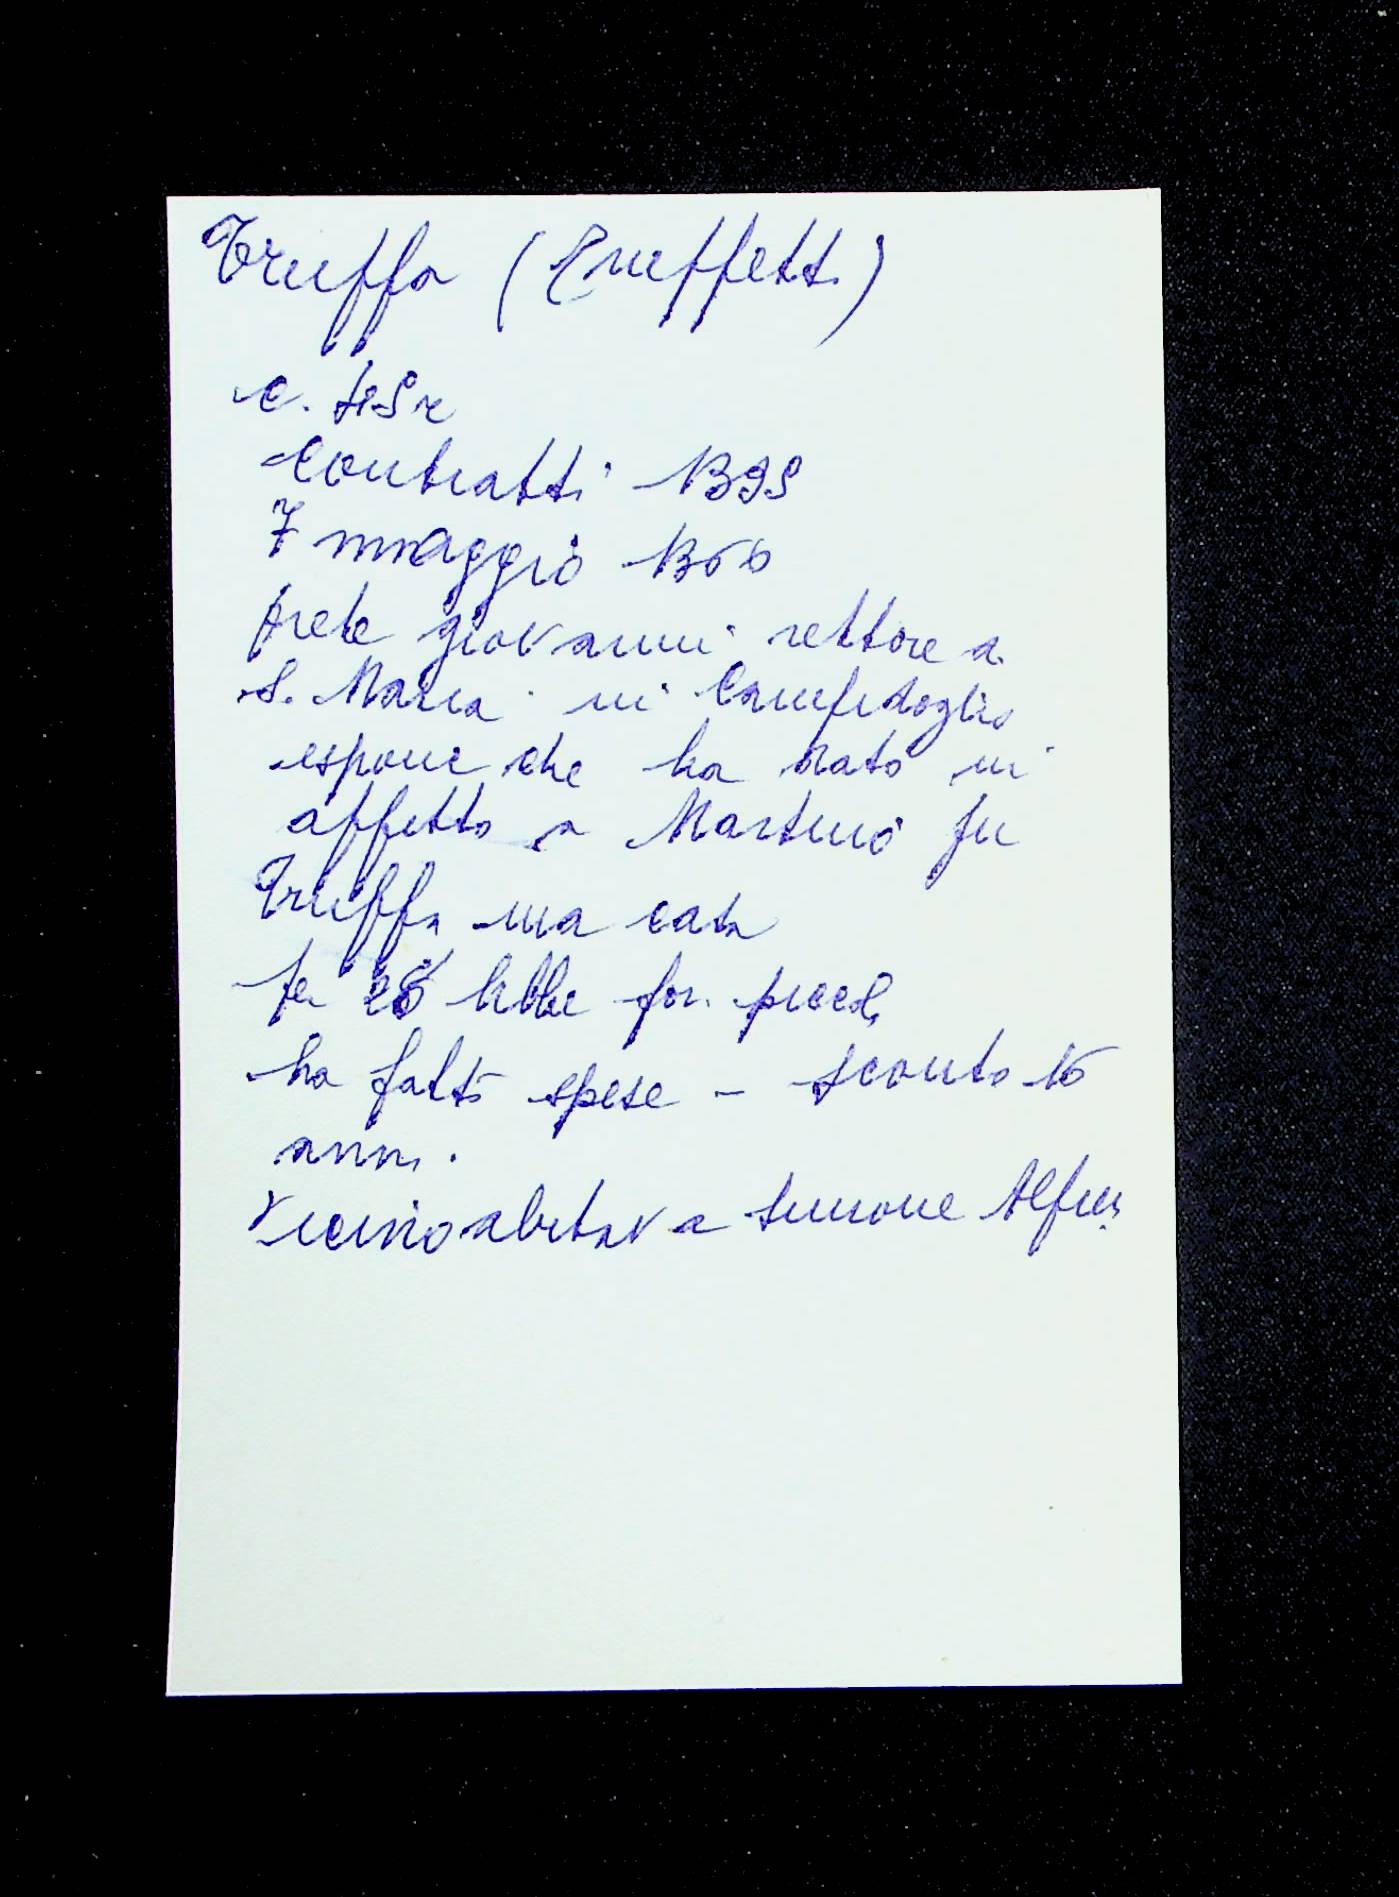 Truffa (Truffetti)
Contratti 1399
7 maggio 1366
prete giovanni rettore a
S. Maria in Campidoglio
espone che ha dato in
affitto a Martino fu
Truffa una casa
per 28 libbre for. piccol,
ha fatto spese - sconto 10
anni.
Vicino abitava Simone